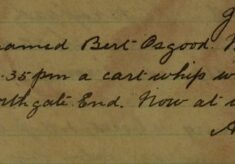 named Bert Osgood.
.35pm a cart whip w
orthgate End. Now at